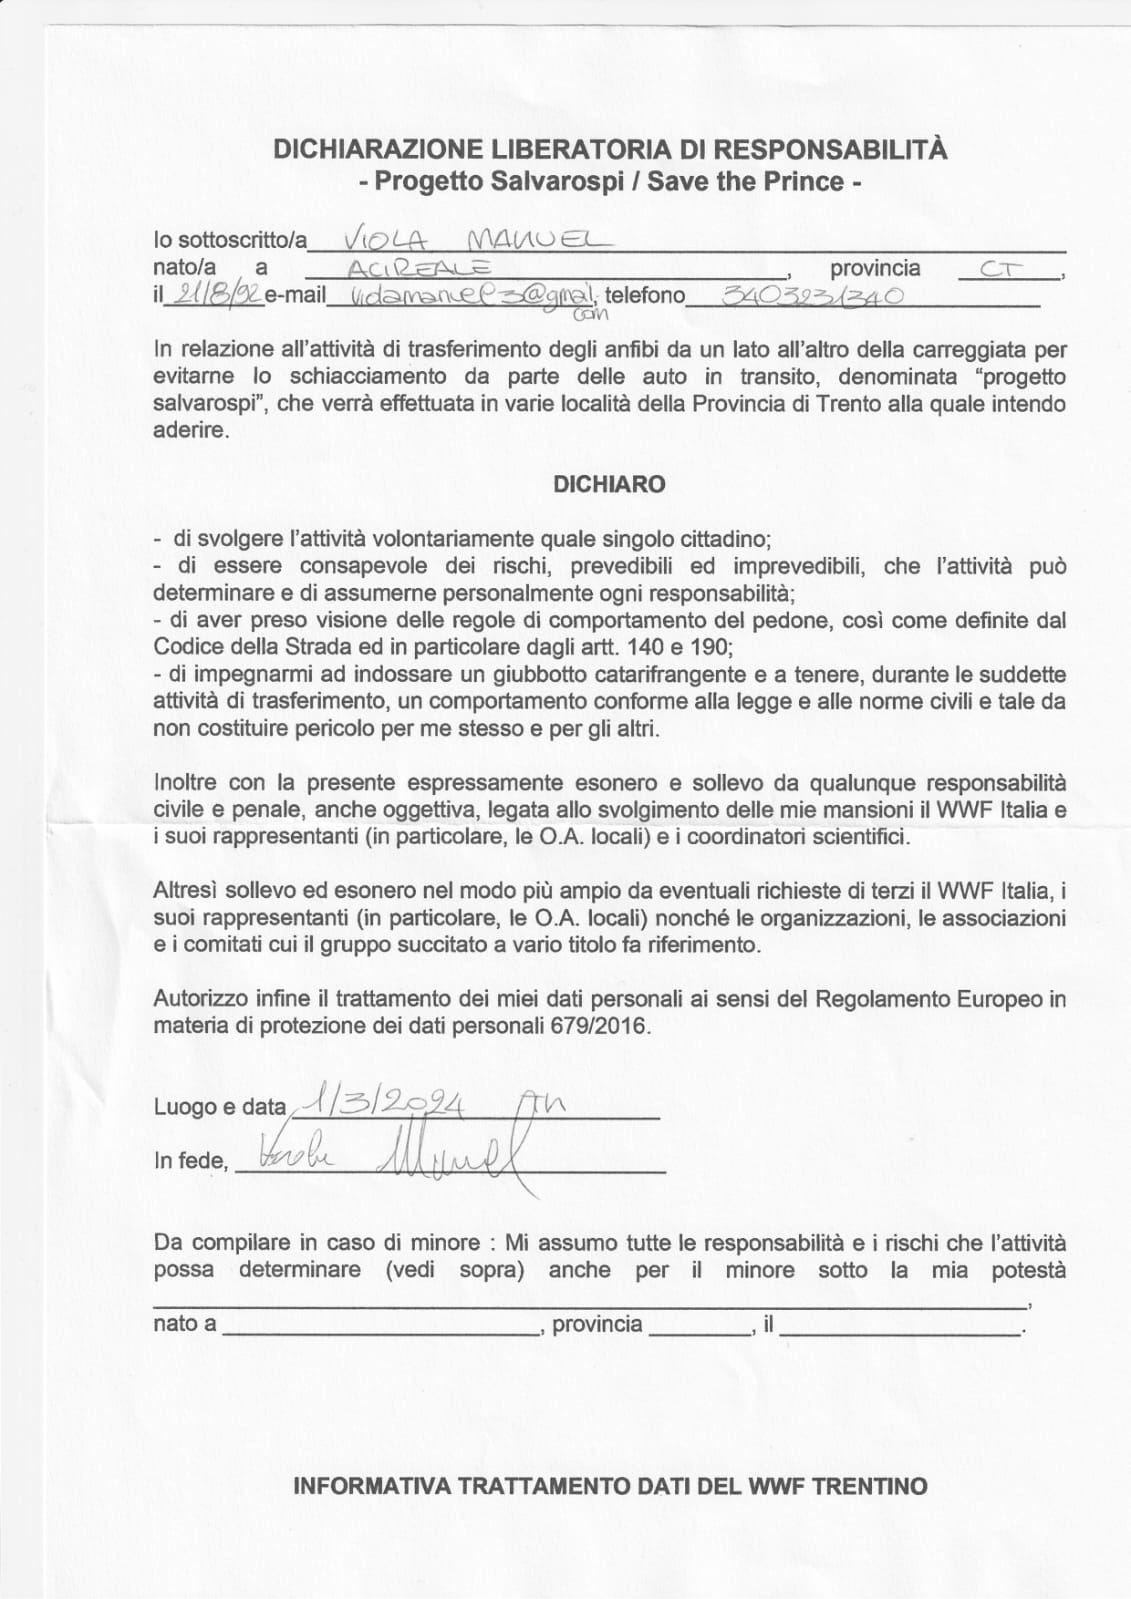 DICHIARAZIONE LIBERATORIA DI RESPONSABILITÀ
- Progetto Salvarospi / Save the Prince -
Io sottoscritto/a VIOLA MANUEL
nato/a a ACIREALE, provincia CT,
il 21/8/92 e-mail @gmail, telefono 3403231340
com
In relazione all'attività di trasferimento degli anfibi da un lato all'altro della carreggiata per
evitarne lo schiacciamento da parte delle auto in transito, denominata “progetto
salvarospi”, che verrà effettuata in varie località della Provincia di Trento alla quale intendo
aderire.
DICHIARO
- di svolgere l'attività volontariamente quale singolo cittadino;
- di essere consapevole dei rischi, prevedibili ed imprevedibili, che l'attività può
determinare e di assumerne personalmente ogni responsabilità;
- di aver preso visione delle regole di comportamento del pedone, così come definite dal
Codice della Strada ed in particolare dagli artt. 140 e 190;
- di impegnarmi ad indossare un giubbotto catarifrangente e a tenere, durante le suddette
attività di trasferimento, un comportamento conforme alla legge e alle norme civili e tale da
non costituire pericolo per me stesso e per gli altri.
Inoltre con la presente espressamente esonero e sollevo da qualunque responsabilità
civile e penale, anche oggettiva, legata allo svolgimento delle mie mansioni il WWF Italia e
i suoi rappresentanti (in particolare, le O.A. locali) e i coordinatori scientifici.
Altresì sollevo ed esonero nel modo più ampio da eventuali richieste di terzi il WWF Italia, i
suoi rappresentanti (in particolare, le O.A. locali) nonché le organizzazioni, le associazioni
e i comitati cui il gruppo succitato a vario titolo fa riferimento.
Autorizzo infine il trattamento dei miei dati personali ai sensi del Regolamento Europeo in
materia di protezione dei dati personali 679/2016.
Luogo e data 1/3/2024
In fede, Manuel
Da compilare in caso di minore : Mi assumo tutte le responsabilità e i rischi che l'attività
possa determinare (vedi sopra) anche per il minore sotto la mia potestà
,
nato a , provincia , il .
INFORMATIVA TRATTAMENTO DATI DEL WWF TRENTINO